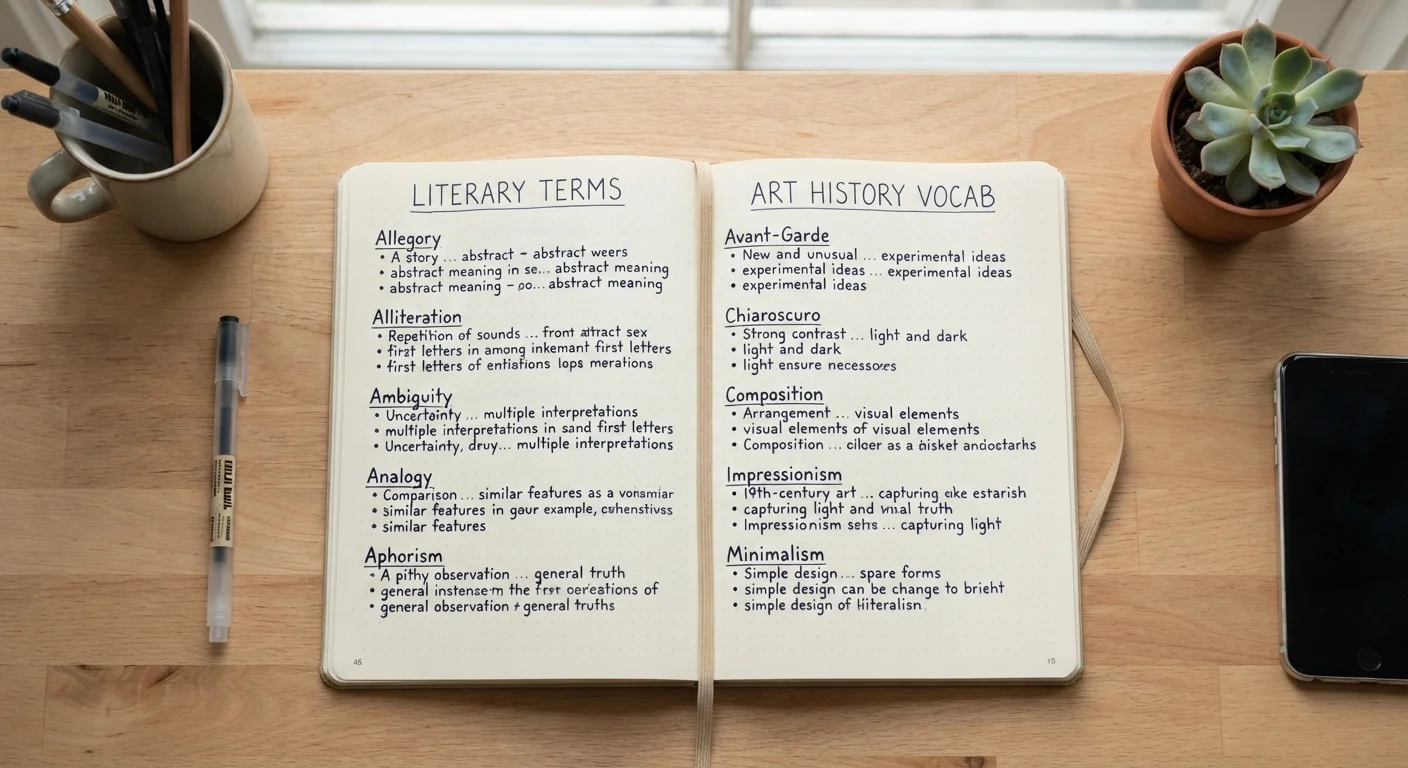 LITERARY TERMS
Allegory
• A story ... abstract – abstract weers
• abstract meaning in se... abstract meaning
• abstract meaning – po... abstract meaning
Alliteration
• Repetition of sounds ... front attract sex
• first letters in among inkemant first letters
• first letters of entiations lops merations
Ambiguity
• Uncertainty ... multiple interpretations
• multiple interpretations in sand first letters
• Uncertainty, ... multiple interpretations
Analogy
• Comparison ... similar features as a
• similar features in gour example,
• similar features
Aphorism
• A pithy observation ... general truth
• general the of
• general observation + general truths
45
ART HISTORY VOCAB
Avant-Garde
• New and unusual ... experimental ideas
• experimental ideas ... experimental ideas
• experimental ideas
Chiaroscuro
• Strong contrast ... light and dark
• light and dark
• light ensure
Composition
• Arrangement ... visual elements
• visual elements of visual elements
• Composition ... as a
Impressionism
• 19th-century art ... capturing estarish
• capturing light and truth
• Impressionism ... capturing light
Minimalism
• Simple design ... spare forms
• simple design can be change to
• simple design of